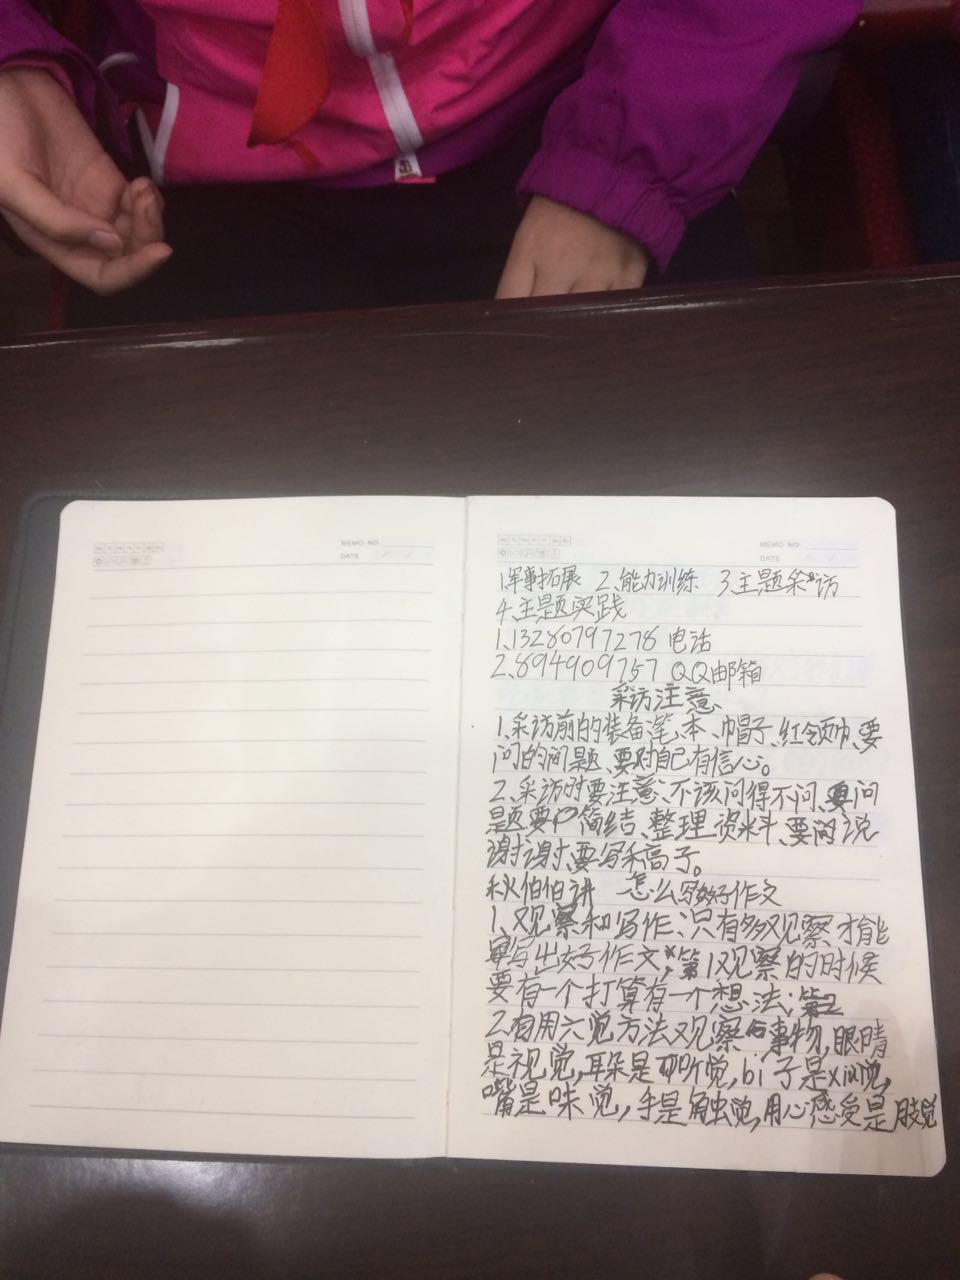 MEMO NO.
DATE
MEMO NO.
DATE
1.军事拓展 2.能力训练 3.主题采访
4.主题实践
1.13280797278 电话
2.894909757 QQ邮箱
采访注意
1、采访前的装备笔、本、帽子、红领巾、要
问的问题、要对自己有信心。
2、采访时要注意、不该问得不问、要问
题要简结、整理资料、要说
谢谢、要写稿子。
秋伯伯讲 怎么写好作文
1、观察和写作、只有多观察才能
写出好作文，第1观察的时候
要有一个打算有一个想法；第2
2.有用六觉方法观察事物，眼睛
是视觉，耳朵是听觉，bi子是xiu觉，
嘴是味觉，手是触觉，用心感受是肢觉